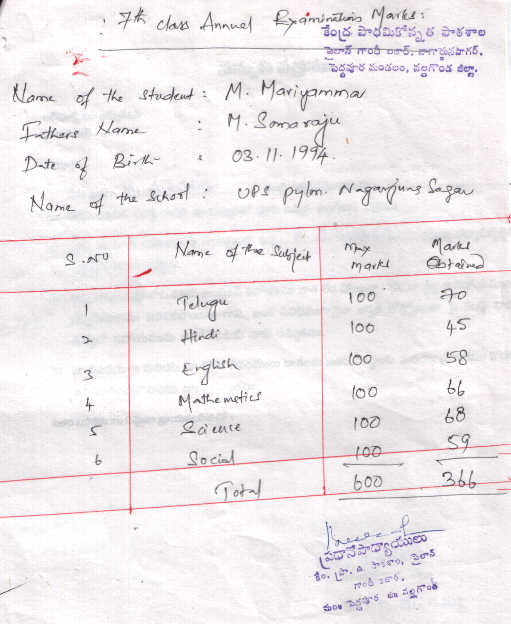 7th class Annual Examinations Marks:
కేంద్ర ప్రాధమికోన్నత పాఠశాల
పైలాన్ గాంధీ బజార్, నాగార్జునసాగర్,
పెద్దవూర మండలం, నల్లగొండ జిల్లా.
Name of the student : M. Mariyamma
Fathers Name : M. Somaraju
Date of Birth : 03.11.1994.
Name of the School : UPS pylon. Nagarjuna Sagar
S.No Name of the Subject Max marks Marks Obtained
1 Telugu 100 70
2 Hindi 100 45
3 English 100 58
4 Mathemetics 100 66
5 Science 100 68
6 Social 100 59
Total 600 366
ప్రధానోపాధ్యాయులు
కేం. ప్రా. ఉ. పాఠశాల, పైలాన్
గాంధీ బజార్,